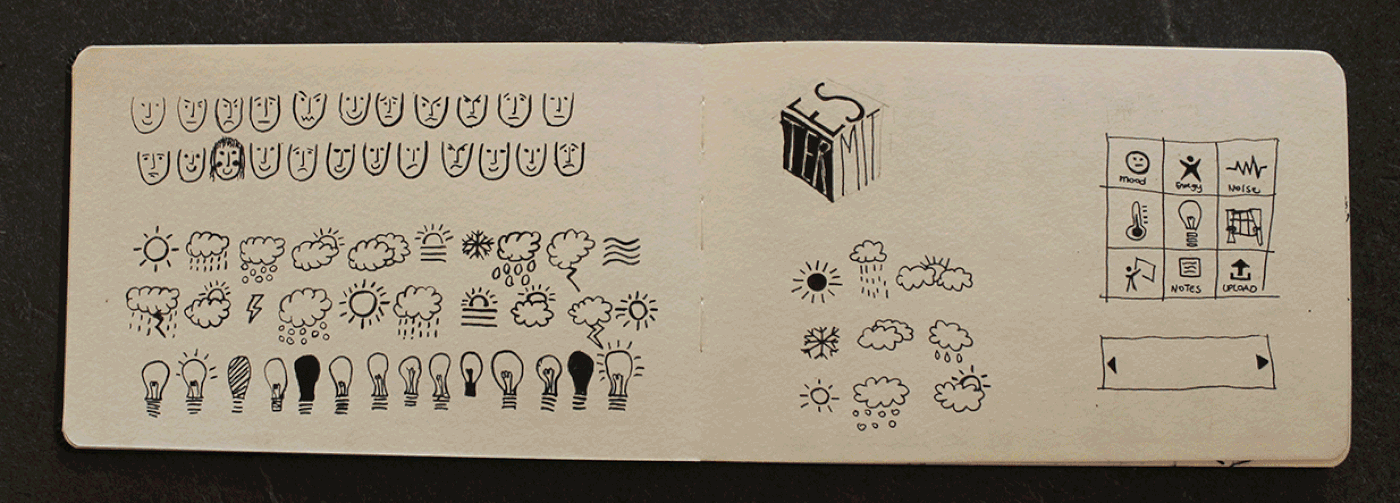 ES
TER
MIT
mood
Energy
NOISE
NOTES
UPLOAD